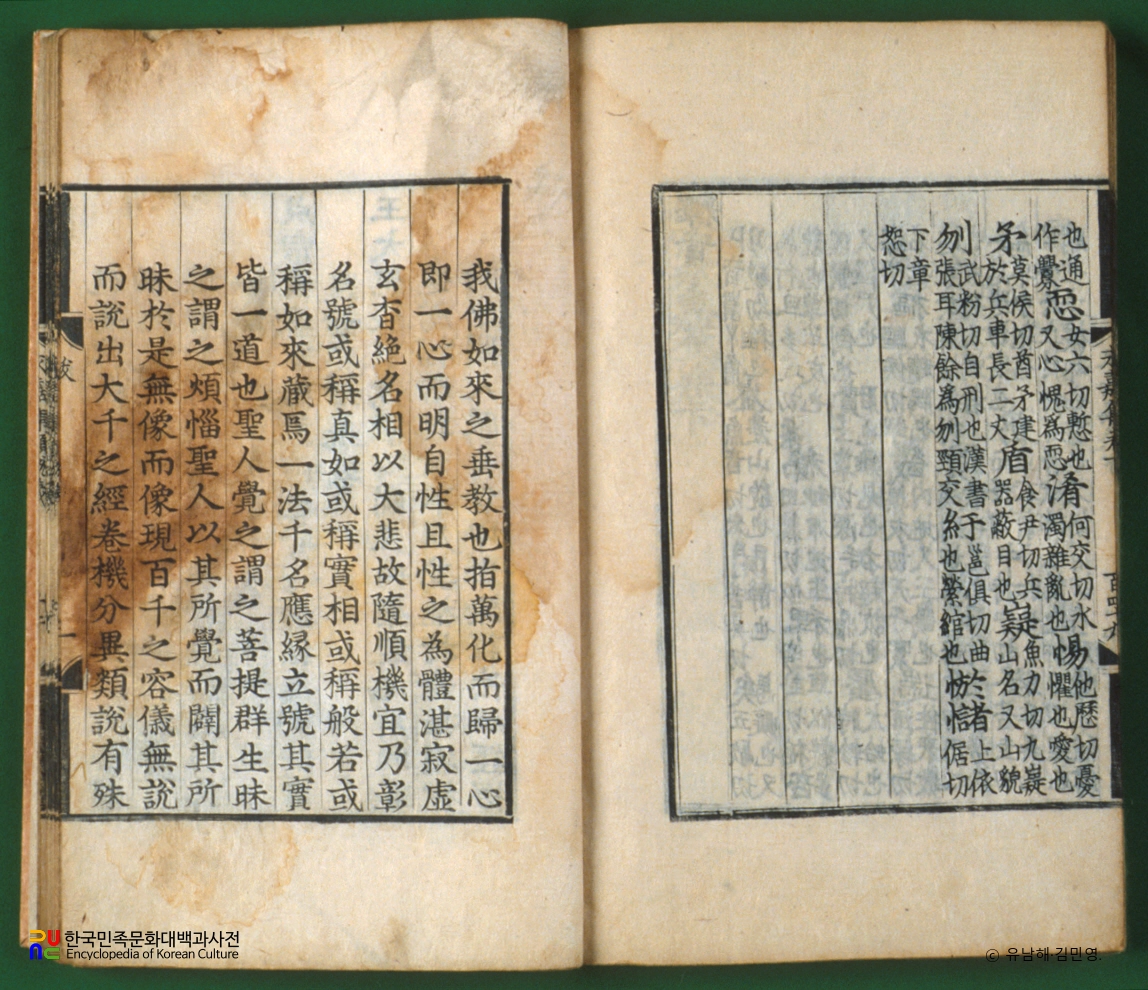 也通作釁恧女六切慙也又心愧爲恧淆何交切水濁雜亂也惕他歷切憂懼也愛也
矛莫侯切酋矛建於兵車長二丈盾食尹切兵器蔽目也嶷魚力切九嶷山名又山貌
刎武粉切自刑也漢書張耳陳餘爲刎頸交紆邕俱切曲也縈綰也上依倨切
下章恕切
我佛如來之垂敎也指萬化而歸一心
即一心而明自性且性之為體湛寂虛
玄杳絶名相以大悲故隨順機宜乃彰
名號或稱真如或稱實相或稱般若或
稱如來蔵焉一法千名應縁立號其實
皆一道也聖人覺之謂之菩提群生昧
之謂之煩惱聖人以其所覺而闢其所
昧於是無像而像現百千之容儀無說
而說出大千之經卷機分異類說有殊
跋
一
한국민족문화대백과사전
Encyclopedia of Korean Culture
© 유남해·김민영.